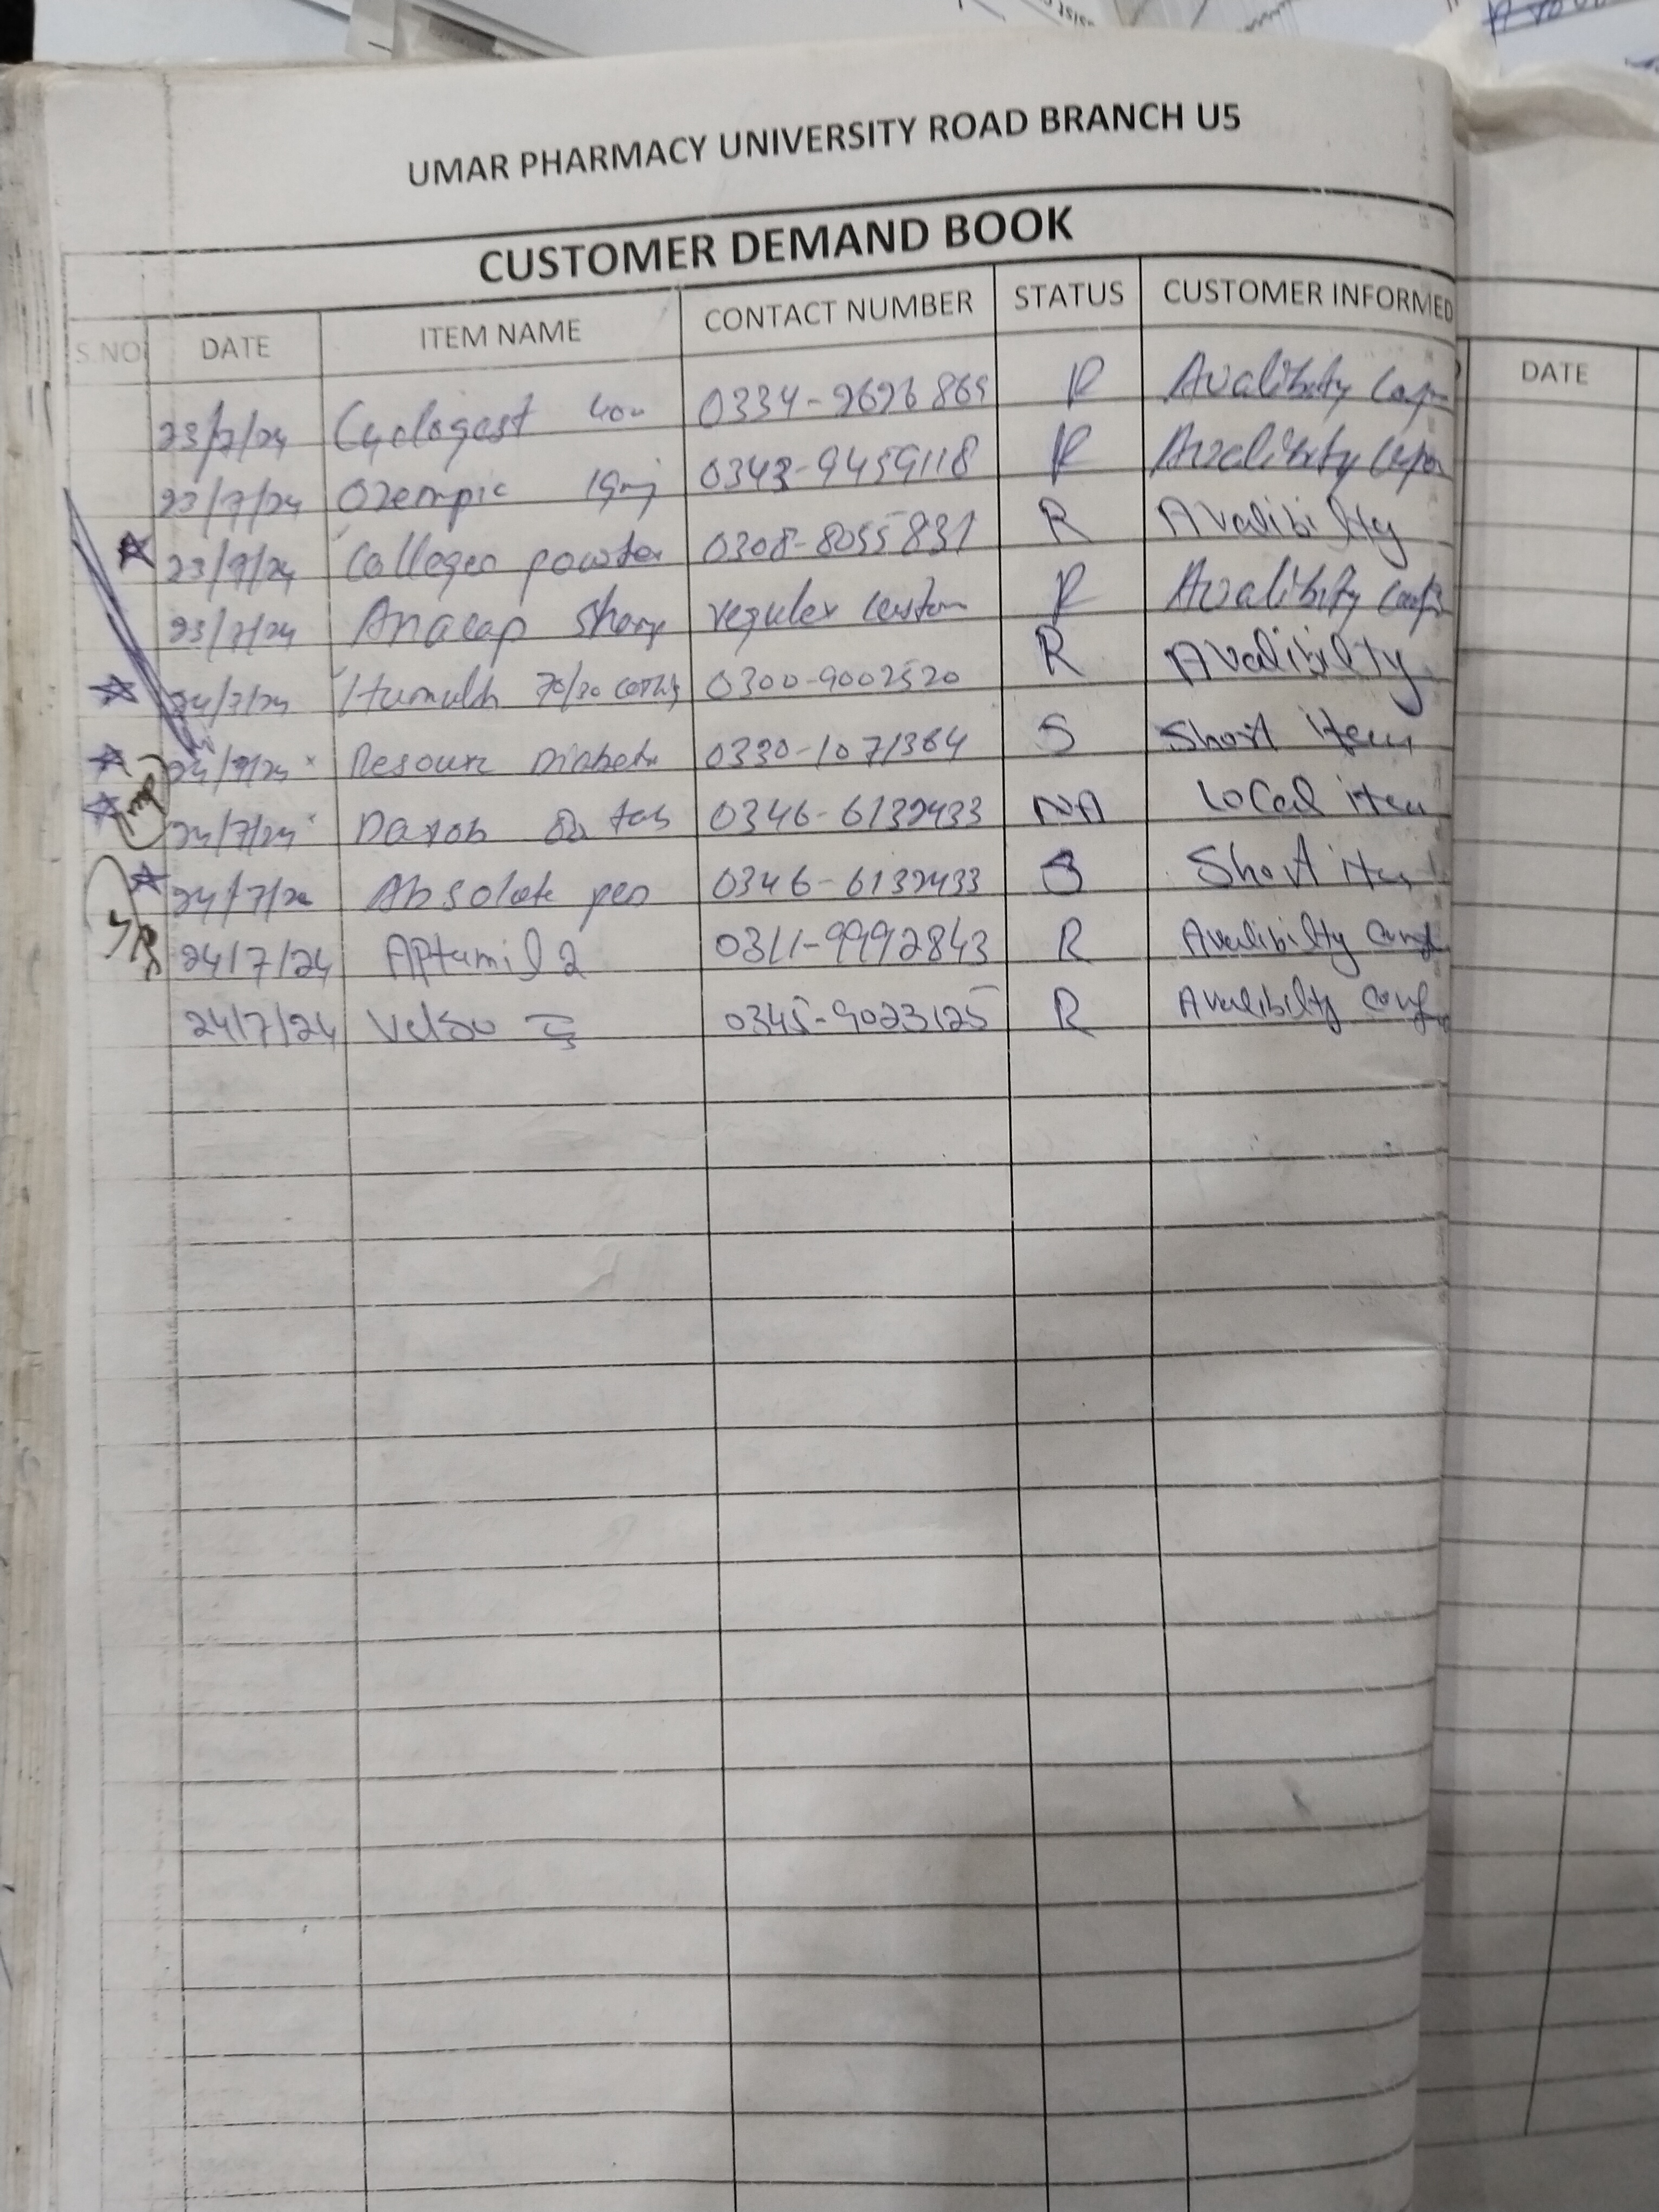 UMAR PHARMACY UNIVERSITY ROAD BRANCH U5
CUSTOMER DEMAND BOOK
S.NO DATE ITEM NAME CONTACT NUMBER STATUS CUSTOMER INFORMED DATE
23/7/24 Cyclogest 400 0334-2626869 R Avalibity
23/7/24 Ozempic 0343-9459118 R Avalibity
23/7/24 Collegeo powder 0308-8055831 R Avalibility
23/7/24 Anacap 0330 regulex R Avalibity
24/7/24 70/30 0300-9002520 R Avalibilty
24/7/24 Resourc Diabetic 0330-1071364 S Short item
24/7/24 tab 0346-6132433 NA Local item
24/7/24 Absolute pen 0346-6132433 S Short item
24/7/24 APtamil 2 0311-9992843 R Avalibilty
24/7/24 0345-9023125 R Avalibilty